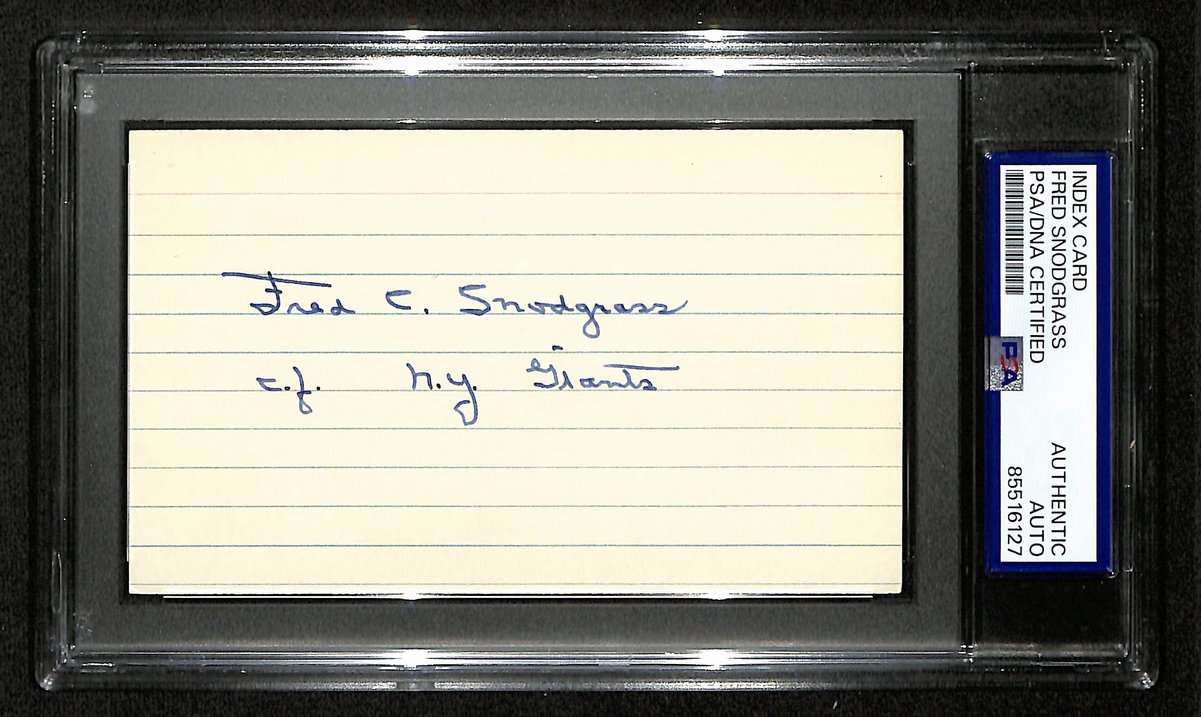 Fred C. Snodgrass
c.f. n.y. Giants
INDEX CARD
FRED SNODGRASS
PSA/DNA CERTIFIED
PSA
AUTHENTIC
AUTO
85516127